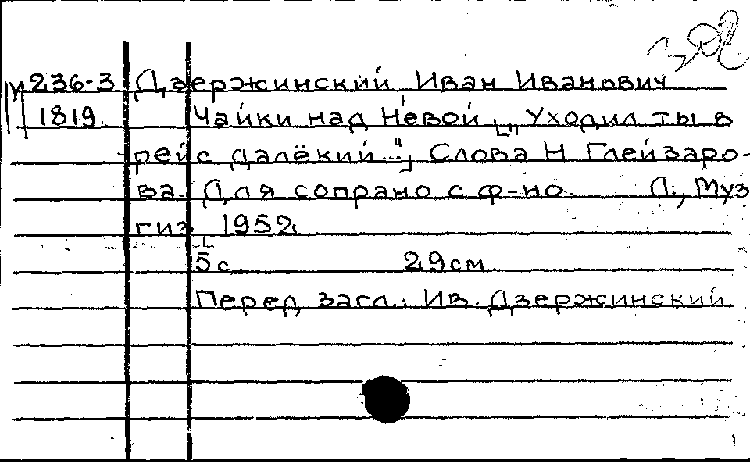 М 236-3 Дзержинский Иван Иванович
1819 Чайки над Невой ["Уходил ты в
рейс далёкий..."] Слова Н Глейзаро-
ва. Для сопрано с ф-но. Л., Муз
гиз 1952.
5 с 29 см
Перед загл.: Ив. Дзержинский